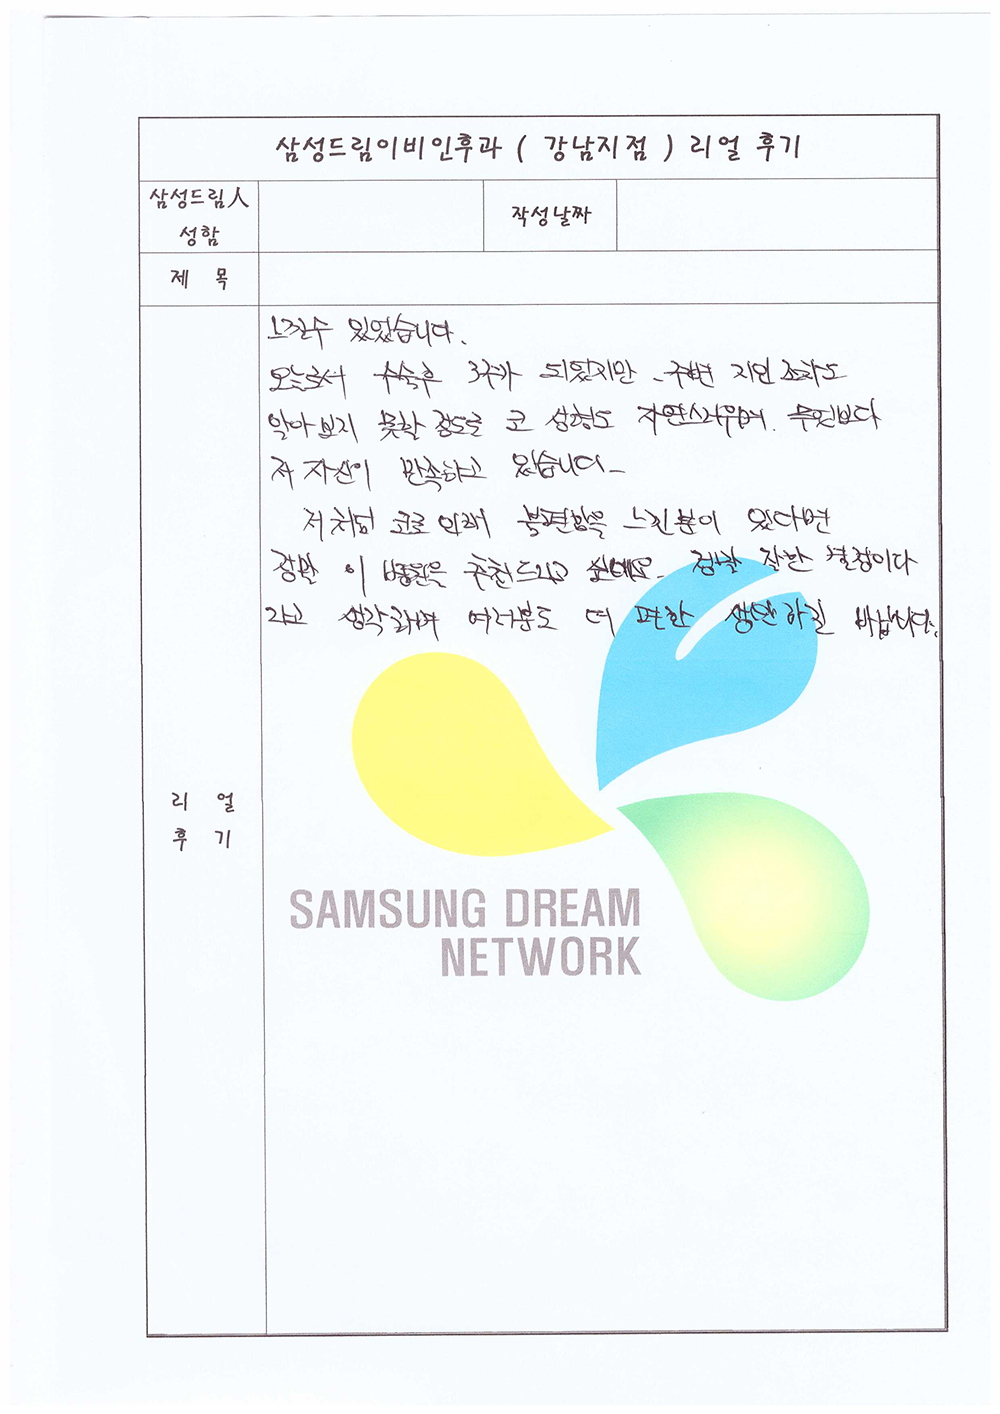 삼성드림이비인후과 ( 강남지점 ) 리얼 후기
삼성드림人
성함
작성날짜
제 목
느낄수 있었습니다.
오늘로서 수술후 3주가 되었지만 주변 지인 조차도
알아보지 못할 정도로 코 성형도 자연스러우며. 무엇보다
저 자신이 만족하고 있습니다.
저처럼 코로 인해 불편함을 느낀분이 있다면
정말 이 병원을 추천드리고 싶네요. 정말 잘한 결정이다
라고 생각하며 여러분도 더 편한 생활하길 바랍니다.
리 얼
후 기
SAMSUNG DREAM
NETWORK